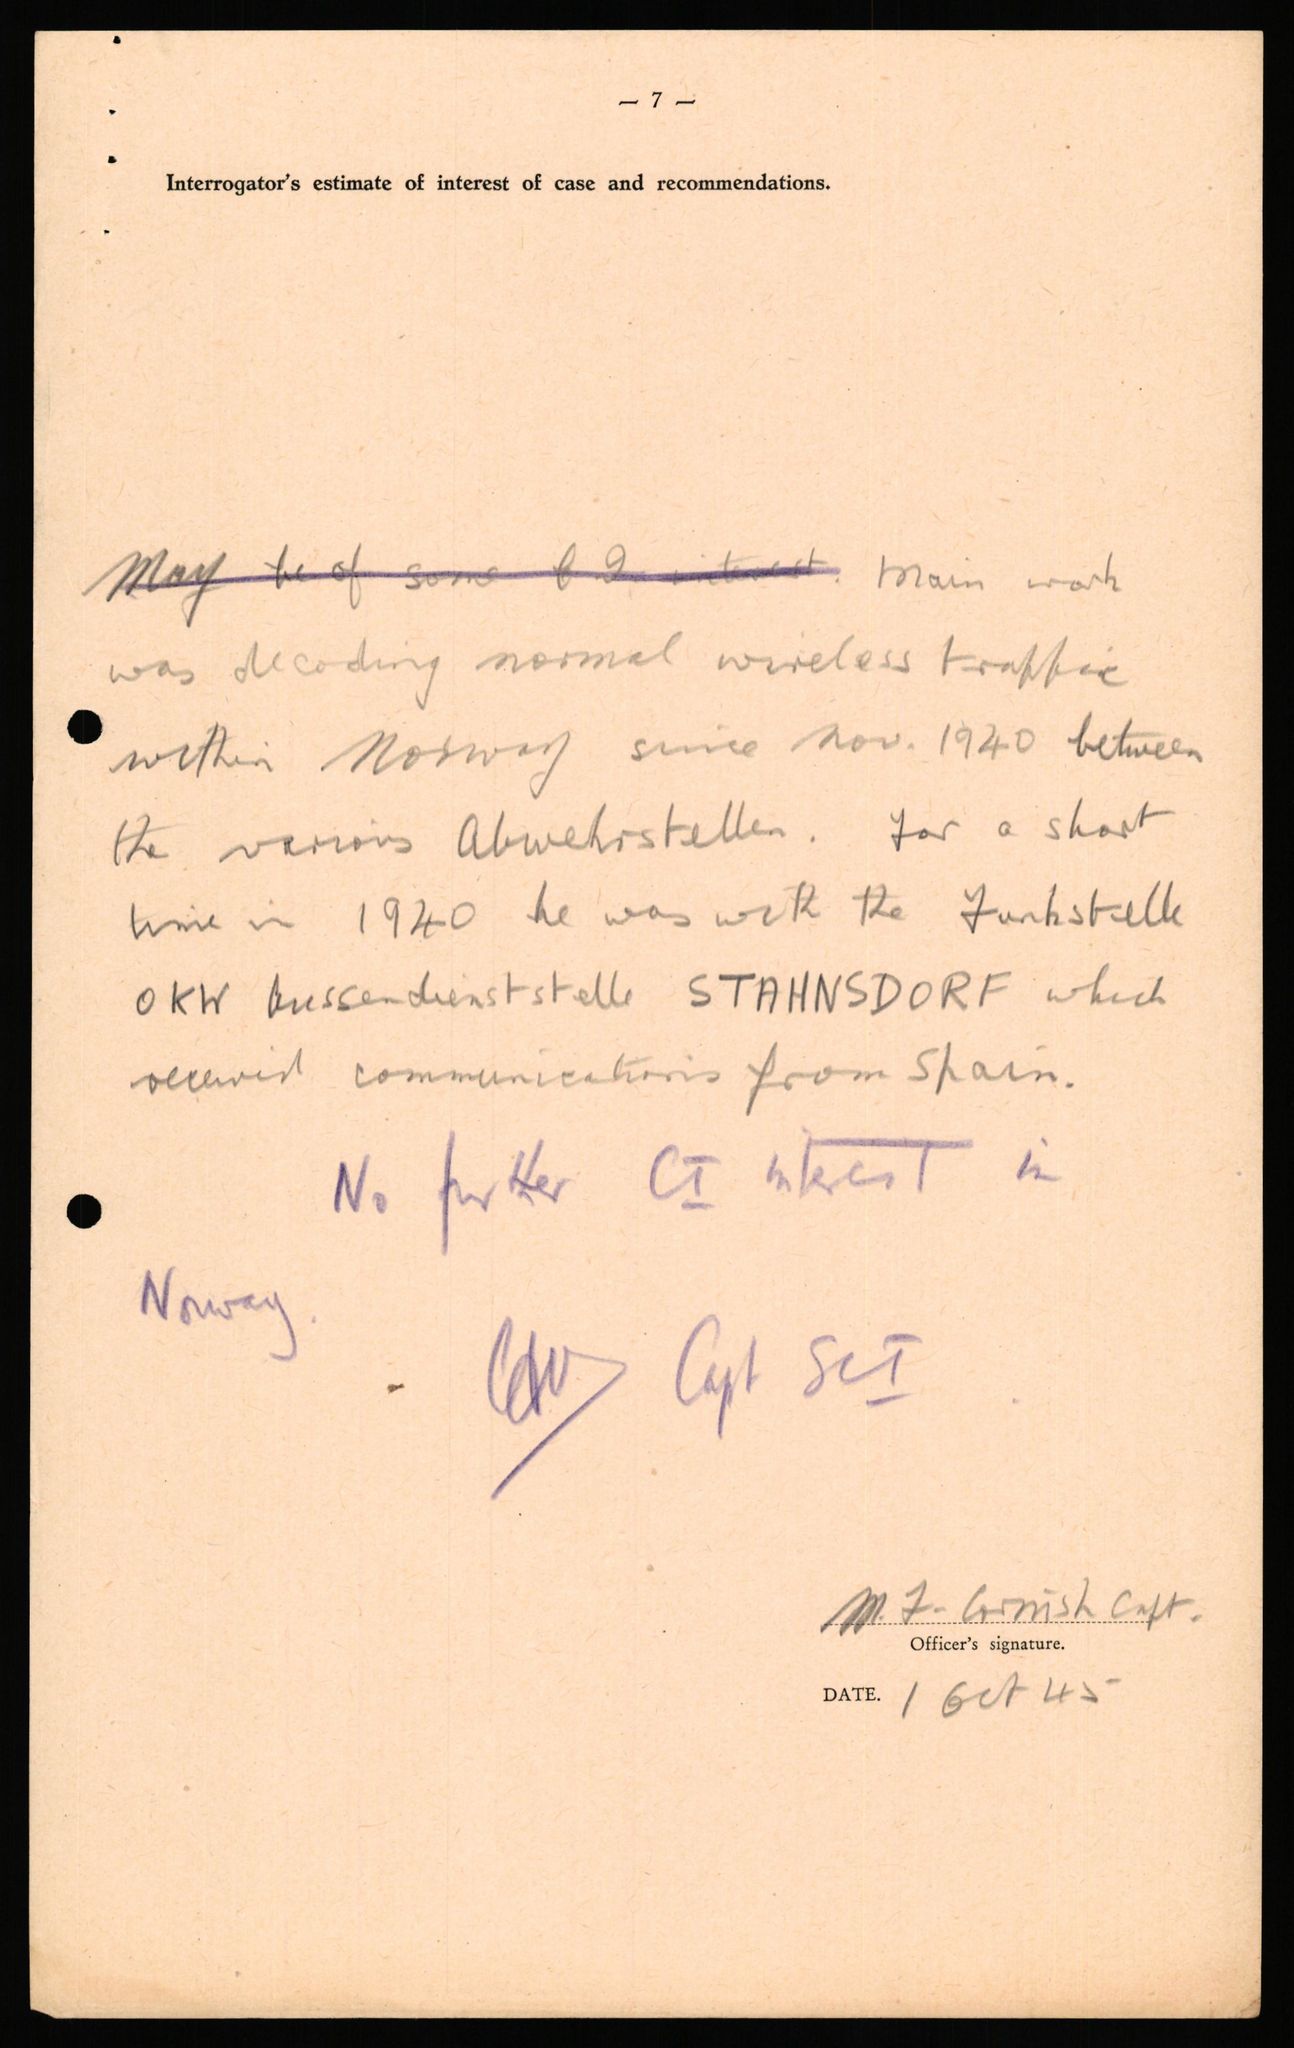 — 7 —
Interrogator's estimate of interest of case and recommendations.
May be of some C I interest. Main work
was decoding normal wireless traffic
within Norway since Nov. 1940 between
the various Abwehrstellen. For a short
time in 1940 he was with the Funkstelle
OKW Aussendienststelle STAHNSDORF which
received communications from Spain.
No further CI interest in
Norway.
Capt SCI
M. F. Cornish Capt.
Officer's signature.
DATE. 1 Oct 45